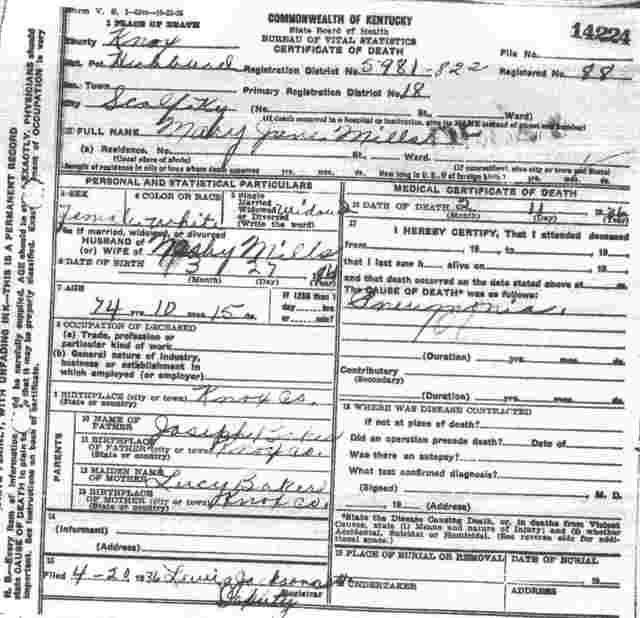 Form V. S.
COMMONWEALTH OF KENTUCKY
State Board of Health
BUREAU OF VITAL STATISTICS
CERTIFICATE OF DEATH
14224
1 PLACE OF DEATH
County Knox
File No.
Vot. Pct. Registration District No. 5981-822 Registered No. 88
Inc. Town Primary Registration District No. 18
City Scalf Ky (No. St., Ward)
(If death occurred in a hospital or institution, give its NAME instead of street and number)
2 FULL NAME Mary Jane Mills
(a) Residence. No. St., Ward.
(Usual place of abode) (If nonresident, give city or town and State)
Length of residence in city or town where death occurred yrs. mos. ds. How long in U. S., if of foreign birth? yrs. mos. ds.
PERSONAL AND STATISTICAL PARTICULARS
3 SEX 4 COLOR OR RACE 5 Single Married Widowed or Divorced (Write the word)
Female White Widow
5a If married, widowed, or divorced
HUSBAND of
(or) WIFE of Mills
6 DATE OF BIRTH 3 27
(Month) (Day) (Year)
7 AGE
74 yrs. 10 mos. 15 ds.
If LESS than 1 day hrs. or min?
8 OCCUPATION OF DECEASED
(a) Trade, profession or particular kind of work
(b) General nature of industry, business or establishment in which employed (or employer)
9 BIRTHPLACE (city or town) Knox Co.
(State or country)
PARENTS
10 NAME OF FATHER Joseph
11 BIRTHPLACE OF FATHER (city or town) Knox Co.
(State or country)
12 MAIDEN NAME OF MOTHER Lucy Baker
13 BIRTHPLACE OF MOTHER (city or town) Knox Co.
(State or country)
14
(Informant)
(Address)
15
Filed 4-20 1936 Lewis Jackson
Registrar
Deputy
MEDICAL CERTIFICATE OF DEATH
21 DATE OF DEATH 2 11 1936
(Month) (Day) (Year)
22 I HEREBY CERTIFY, That I attended deceased
from , 19 , to , 19
that I last saw h alive on , 19
and that death occurred on the date stated above at m.
The CAUSE OF DEATH* was as follows:
Pneumonia
(Duration) yrs. mos. ds.
Contributory
(Secondary)
(Duration) yrs. mos. ds.
18 WHERE WAS DISEASE CONTRACTED
if not at place of death?
Did an operation precede death? Date of
Was there an autopsy?
What test confirmed diagnosis?
(Signed) M. D.
, 19 (Address)
*State the Disease Causing Death, or, in deaths from Violent Causes, state (1) Means and nature of Injury; and (2) whether Accidental, Suicidal or Homicidal. (See reverse side for additional space.)
19 PLACE OF BURIAL OR REMOVAL DATE OF BURIAL
19
UNDERTAKER ADDRESS
WITH UNFADING INK—THIS IS A PERMANENT RECORD